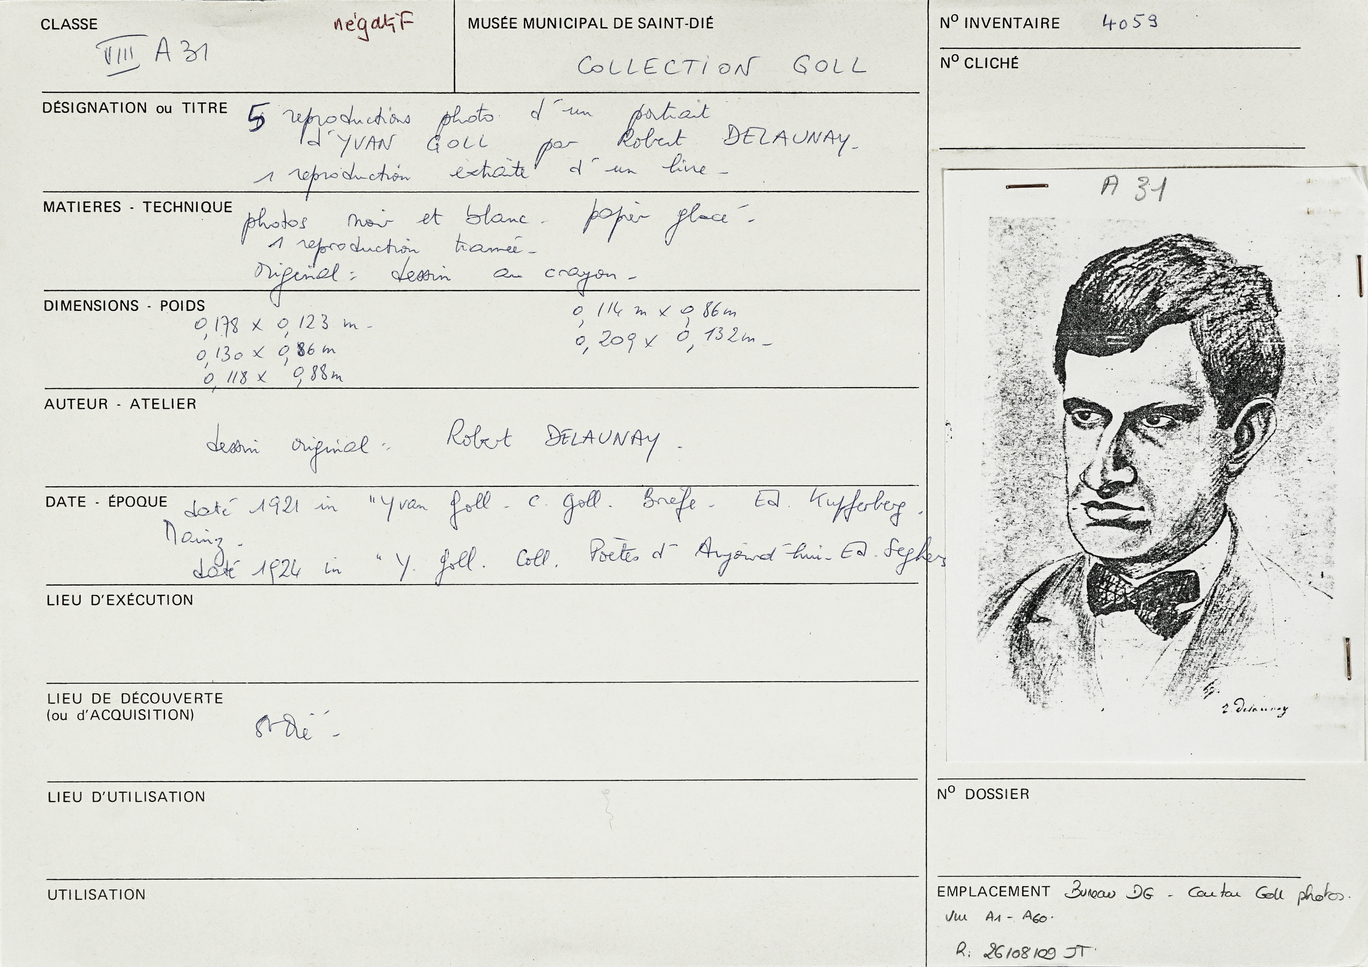 CLASSE
négatif
VIII A 31
MUSÉE MUNICIPAL DE SAINT-DIÉ
COLLECTION GOLL
Nº INVENTAIRE 4059
Nº CLICHÉ
DÉSIGNATION ou TITRE 5 reproductions photo d'un portrait
d'YVAN GOLL par Robert DELAUNAY.
1 reproduction extraite d'un livre -
MATIERES - TECHNIQUE photos noir et blanc - papier glacé -
1 reproduction tramée -
original : dessin au crayon -
DIMENSIONS - POIDS
0,178 x 0,123 m -
0,130 x 0,86 m
0,118 x 0,88 m
0,114 m x 0,86 m
0,209 x 0,132 m -
AUTEUR - ATELIER
dessin original : Robert DELAUNAY .
DATE - ÉPOQUE daté 1921 in "Yvan Goll . C. Goll . Briefe . Ed. Kupferberg .
Mainz .
daté 1924 in "Y. Goll . Coll. Poètes d'Aujourd'hui - Ed. Seghers
LIEU D'EXÉCUTION
LIEU DE DÉCOUVERTE
(ou d'ACQUISITION) St-Dié -
LIEU D'UTILISATION
UTILISATION
A 31
r. delaunay
Nº DOSSIER
EMPLACEMENT Bureau DG - Carton Goll photos.
VIII A1 - A60.
R: 26/08/09 JT